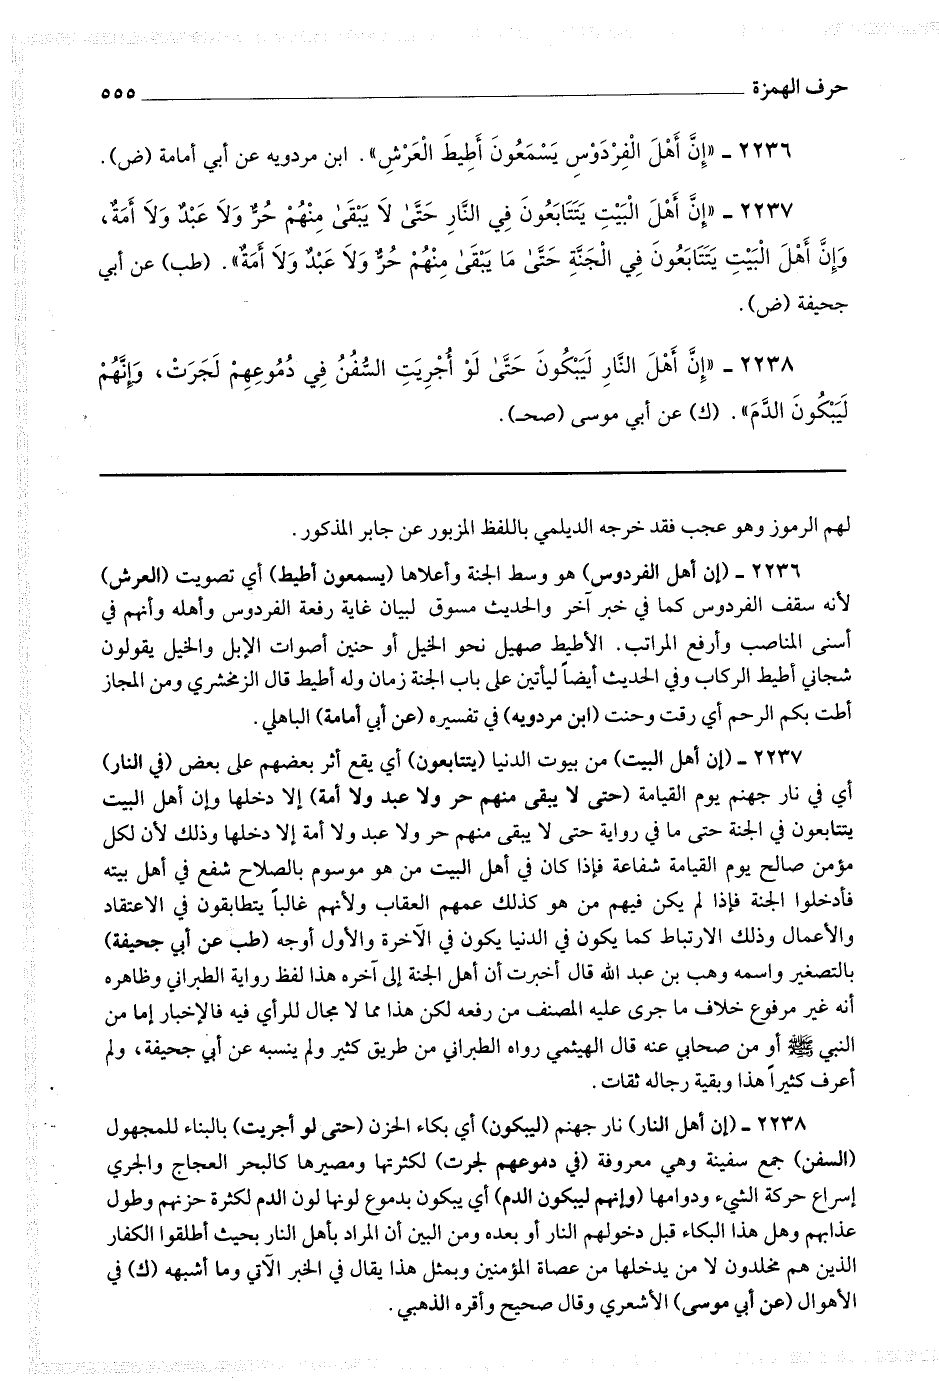 حرف الهمزة ٥٥٥
٢٢٣٦ ـ «إِنَّ أَهْلَ الْفِرْدَوْسِ يَسْمَعُونَ أَطِيطَ الْعَرْشِ». ابن مردويه عن أبي أمامة (ض).
٢٢٣٧ ـ «إِنَّ أَهْلَ الْبَيْتِ يَتَتَابَعُونَ فِي النَّارِ حَتَّىٰ لاَ يَبْقَىٰ مِنْهُمْ حُرٌّ وَلاَ عَبْدٌ وَلاَ أَمَةٌ،
وَإِنَّ أَهْلَ الْبَيْتِ يَتَتَابَعُونَ فِي الْجَنَّةِ حَتَّىٰ مَا يَبْقَىٰ مِنْهُمْ حُرٌّ وَلاَ عَبْدٌ وَلاَ أَمَةٌ». (طب) عن أبي
جحيفة (ض).
٢٢٣٨ ـ «إِنَّ أَهْلَ النَّارِ لَيَبْكُونَ حَتَّىٰ لَوْ أُجْرِيَتِ السُّفُنُ فِي دُمُوعِهِمْ لَجَرَتْ، وَإِنَّهُمْ
لَيَبْكُونَ الدَّمَ». (ك) عن أبي موسى (صحـ).
لهم الرموز وهو عجب فقد خرجه الديلمي باللفظ المزبور عن جابر المذكور.
٢٢٣٦ ـ (إن أهل الفردوس) هو وسط الجنة وأعلاها (يسمعون أطيط) أي تصويت (العرش)
لأنه سقف الفردوس كما في خبر آخر والحديث مسوق لبيان غاية رفعة الفردوس وأهله وأنهم في
أسنى المناصب وأرفع المراتب. الأطيط صهيل نحو الخيل أو حنين أصوات الإبل والخيل يقولون
شجاني أطيط الركاب وفي الحديث أيضاً ليأتين على باب الجنة زمان وله أطيط قال الزمخشري ومن المجاز
أطت بكم الرحم أي رقت وحنت (ابن مردويه) في تفسيره (عن أبي أمامة) الباهلي.
٢٢٣٧ ـ (إن أهل البيت) من بيوت الدنيا (يتتابعون) أي يقع أثر بعضهم على بعض (في النار)
أي في نار جهنم يوم القيامة (حتى لا يبقى منهم حر ولا عبد ولا أمة) إلا دخلها وإن أهل البيت
يتتابعون في الجنة حتى ما في رواية حتى لا يبقى منهم حر ولا عبد ولا أمة إلا دخلها وذلك لأن لكل
مؤمن صالح يوم القيامة شفاعة فإذا كان في أهل البيت من هو موسوم بالصلاح شفع في أهل بيته
فأدخلوا الجنة فإذا لم يكن فيهم من هو كذلك عمهم العقاب ولأنهم غالباً يتطابقون في الاعتقاد
والأعمال وذلك الارتباط كما يكون في الدنيا يكون في الآخرة والأول أوجه (طب عن أبي جحيفة)
بالتصغير واسمه وهب بن عبد الله قال أخبرت أن أهل الجنة إلى آخره هذا لفظ رواية الطبراني وظاهره
أنه غير مرفوع خلاف ما جرى عليه المصنف من رفعه لكن هذا مما لا مجال للرأي فيه فالإخبار إما من
النبي ﷺ أو من صحابي عنه قال الهيثمي رواه الطبراني من طريق كثير ولم ينسبه عن أبي جحيفة، ولم
أعرف كثيراً هذا وبقية رجاله ثقات.
٢٢٣٨ ـ (إن أهل النار) نار جهنم (ليبكون) أي بكاء الحزن (حتى لو أجريت) بالبناء للمجهول
(السفن) جمع سفينة وهي معروفة (في دموعهم لجرت) لكثرتها ومصيرها كالبحر العجاج والجري
إسراع حركة الشيء ودوامها (وإنهم ليبكون الدم) أي يبكون بدموع لونها لون الدم لكثرة حزنهم وطول
عذابهم وهل هذا البكاء قبل دخولهم النار أو بعده ومن البين أن المراد بأهل النار بحيث أطلقوا الكفار
الذين هم مخلدون لا من يدخلها من عصاة المؤمنين وبمثل هذا يقال في الخبر الآتي وما أشبهه (ك) في
الأهوال (عن أبي موسى) الأشعري وقال صحيح وأقره الذهبي.